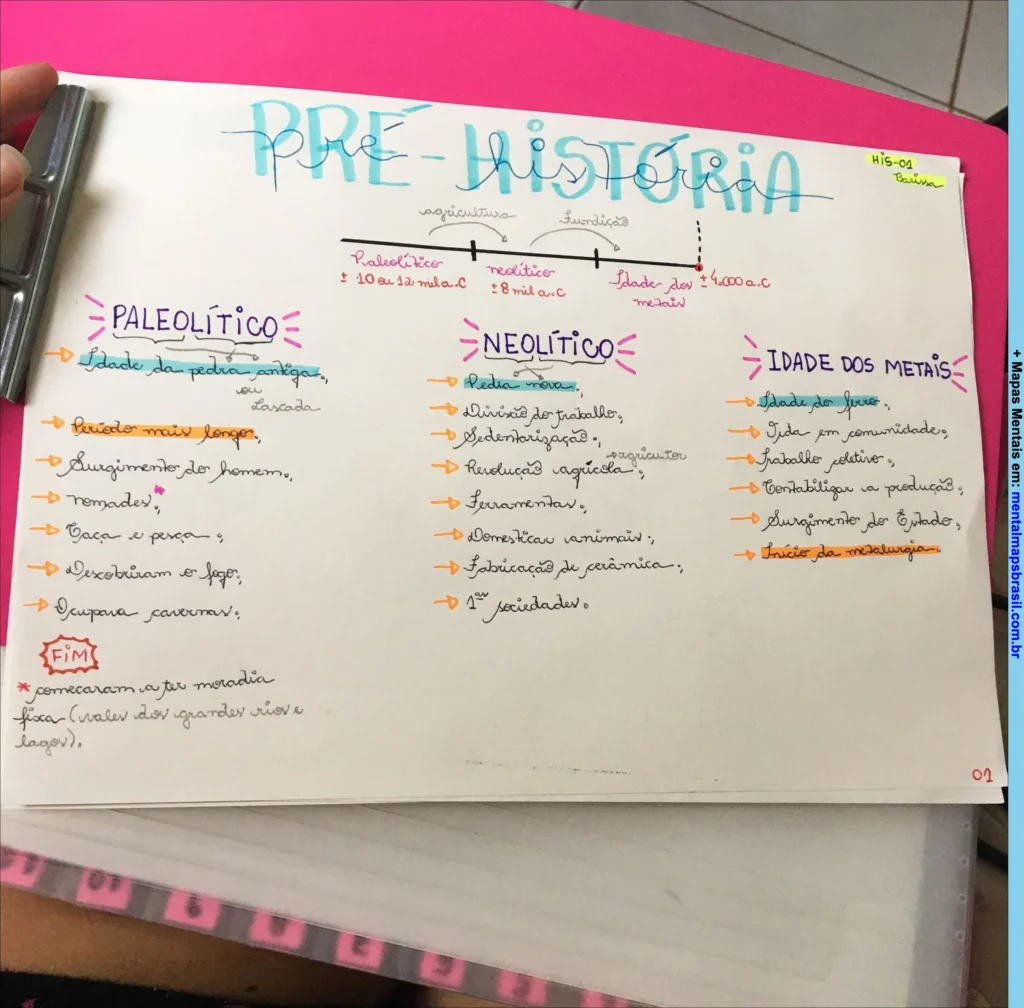 PRÉ-HISTÓRIA
pré história
HIS-01
Barissa
agricultura
Fundição
Paleolítico
± 10 ou 12 mil a.C
neolítico
± 8 mil a.C
Idade dos
metais
± 4.000 a.C
PALEOLÍTICO
→ Idade da pedra antiga;
ou
Lascada
→ Período mais longo;
→ Surgimento do homem;
→ nomades*;
→ Caça e pesca;
→ Descobriram o fogo;
→ Ocupava cavernas;
FIM
* começaram a ter moradia
fixa (vales dos grandes rios e
lagos).
NEOLÍTICO
→ Pedra nova;
→ Divisão do trabalho;
→ Sedentarização;
→ agricutor
→ Revolução agrícola;
→ Ferramentas;
→ Domesticar animais;
→ Fabricação de cerâmica;
→ 1ªs sociedades.
IDADE DOS METAIS
→ Idade do ferro;
→ Vida em comunidade;
→ Trabalho coletivo;
→ Contabilizar a produção;
→ Surgimento do Estado;
→ Início da metalurgia.
01
+ Mapas Mentais em: mentalmapsbrasil.com.br